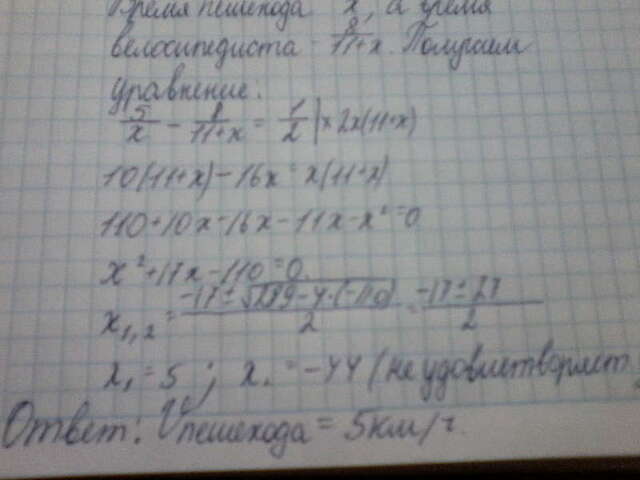 Время пешехода x, а время
велосипедиста - 8/11+x. Получаем
уравнение:
5/x - 8/11+x = 1/2 | × 2x(11+x)
10(11+x)-16x=x(11+x)
110+10x-16x-11x-x²=0
x²+17x-110=0
x1,2 = -17±√289-4·(-110)/2 = -17±27/2
x1=5 ; x. = -44 (не удовлетворяет
Ответ: Vпешехода = 5км/ч.